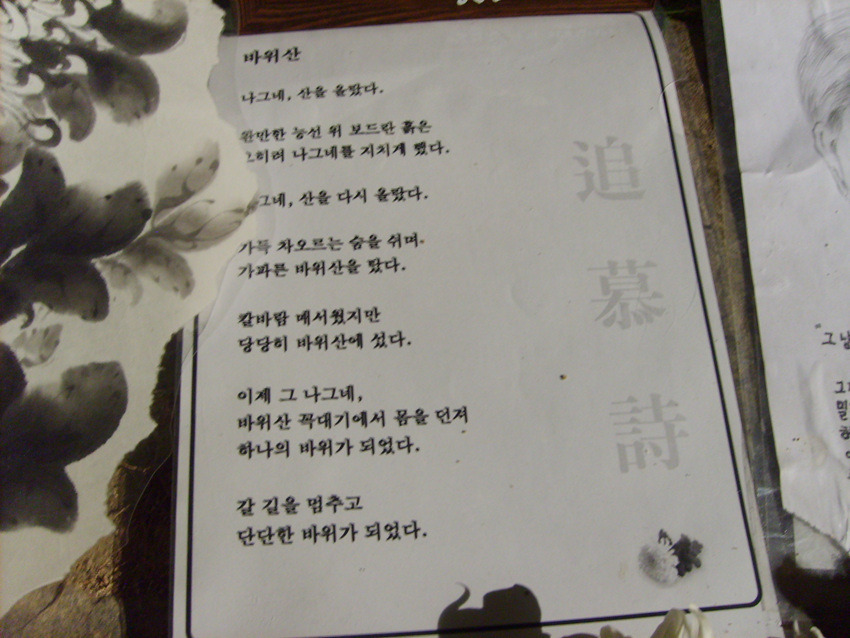 바위산
나그네, 산을 올랐다.
완만한 능선 위 보드란 흙은
나그네를 지치게 했다.
산을 다시 올랐다.
가득 차오르는 숨을 쉬며
가파른 바위산을 탔다.
칼바람 매서웠지만
당당히 바위산에 섰다.
이제 그 나그네,
바위산 꼭대기에서 몸을 던져
하나의 바위가 되었다.
갈 길을 멈추고
단단한 바위가 되었다.
追
慕
詩